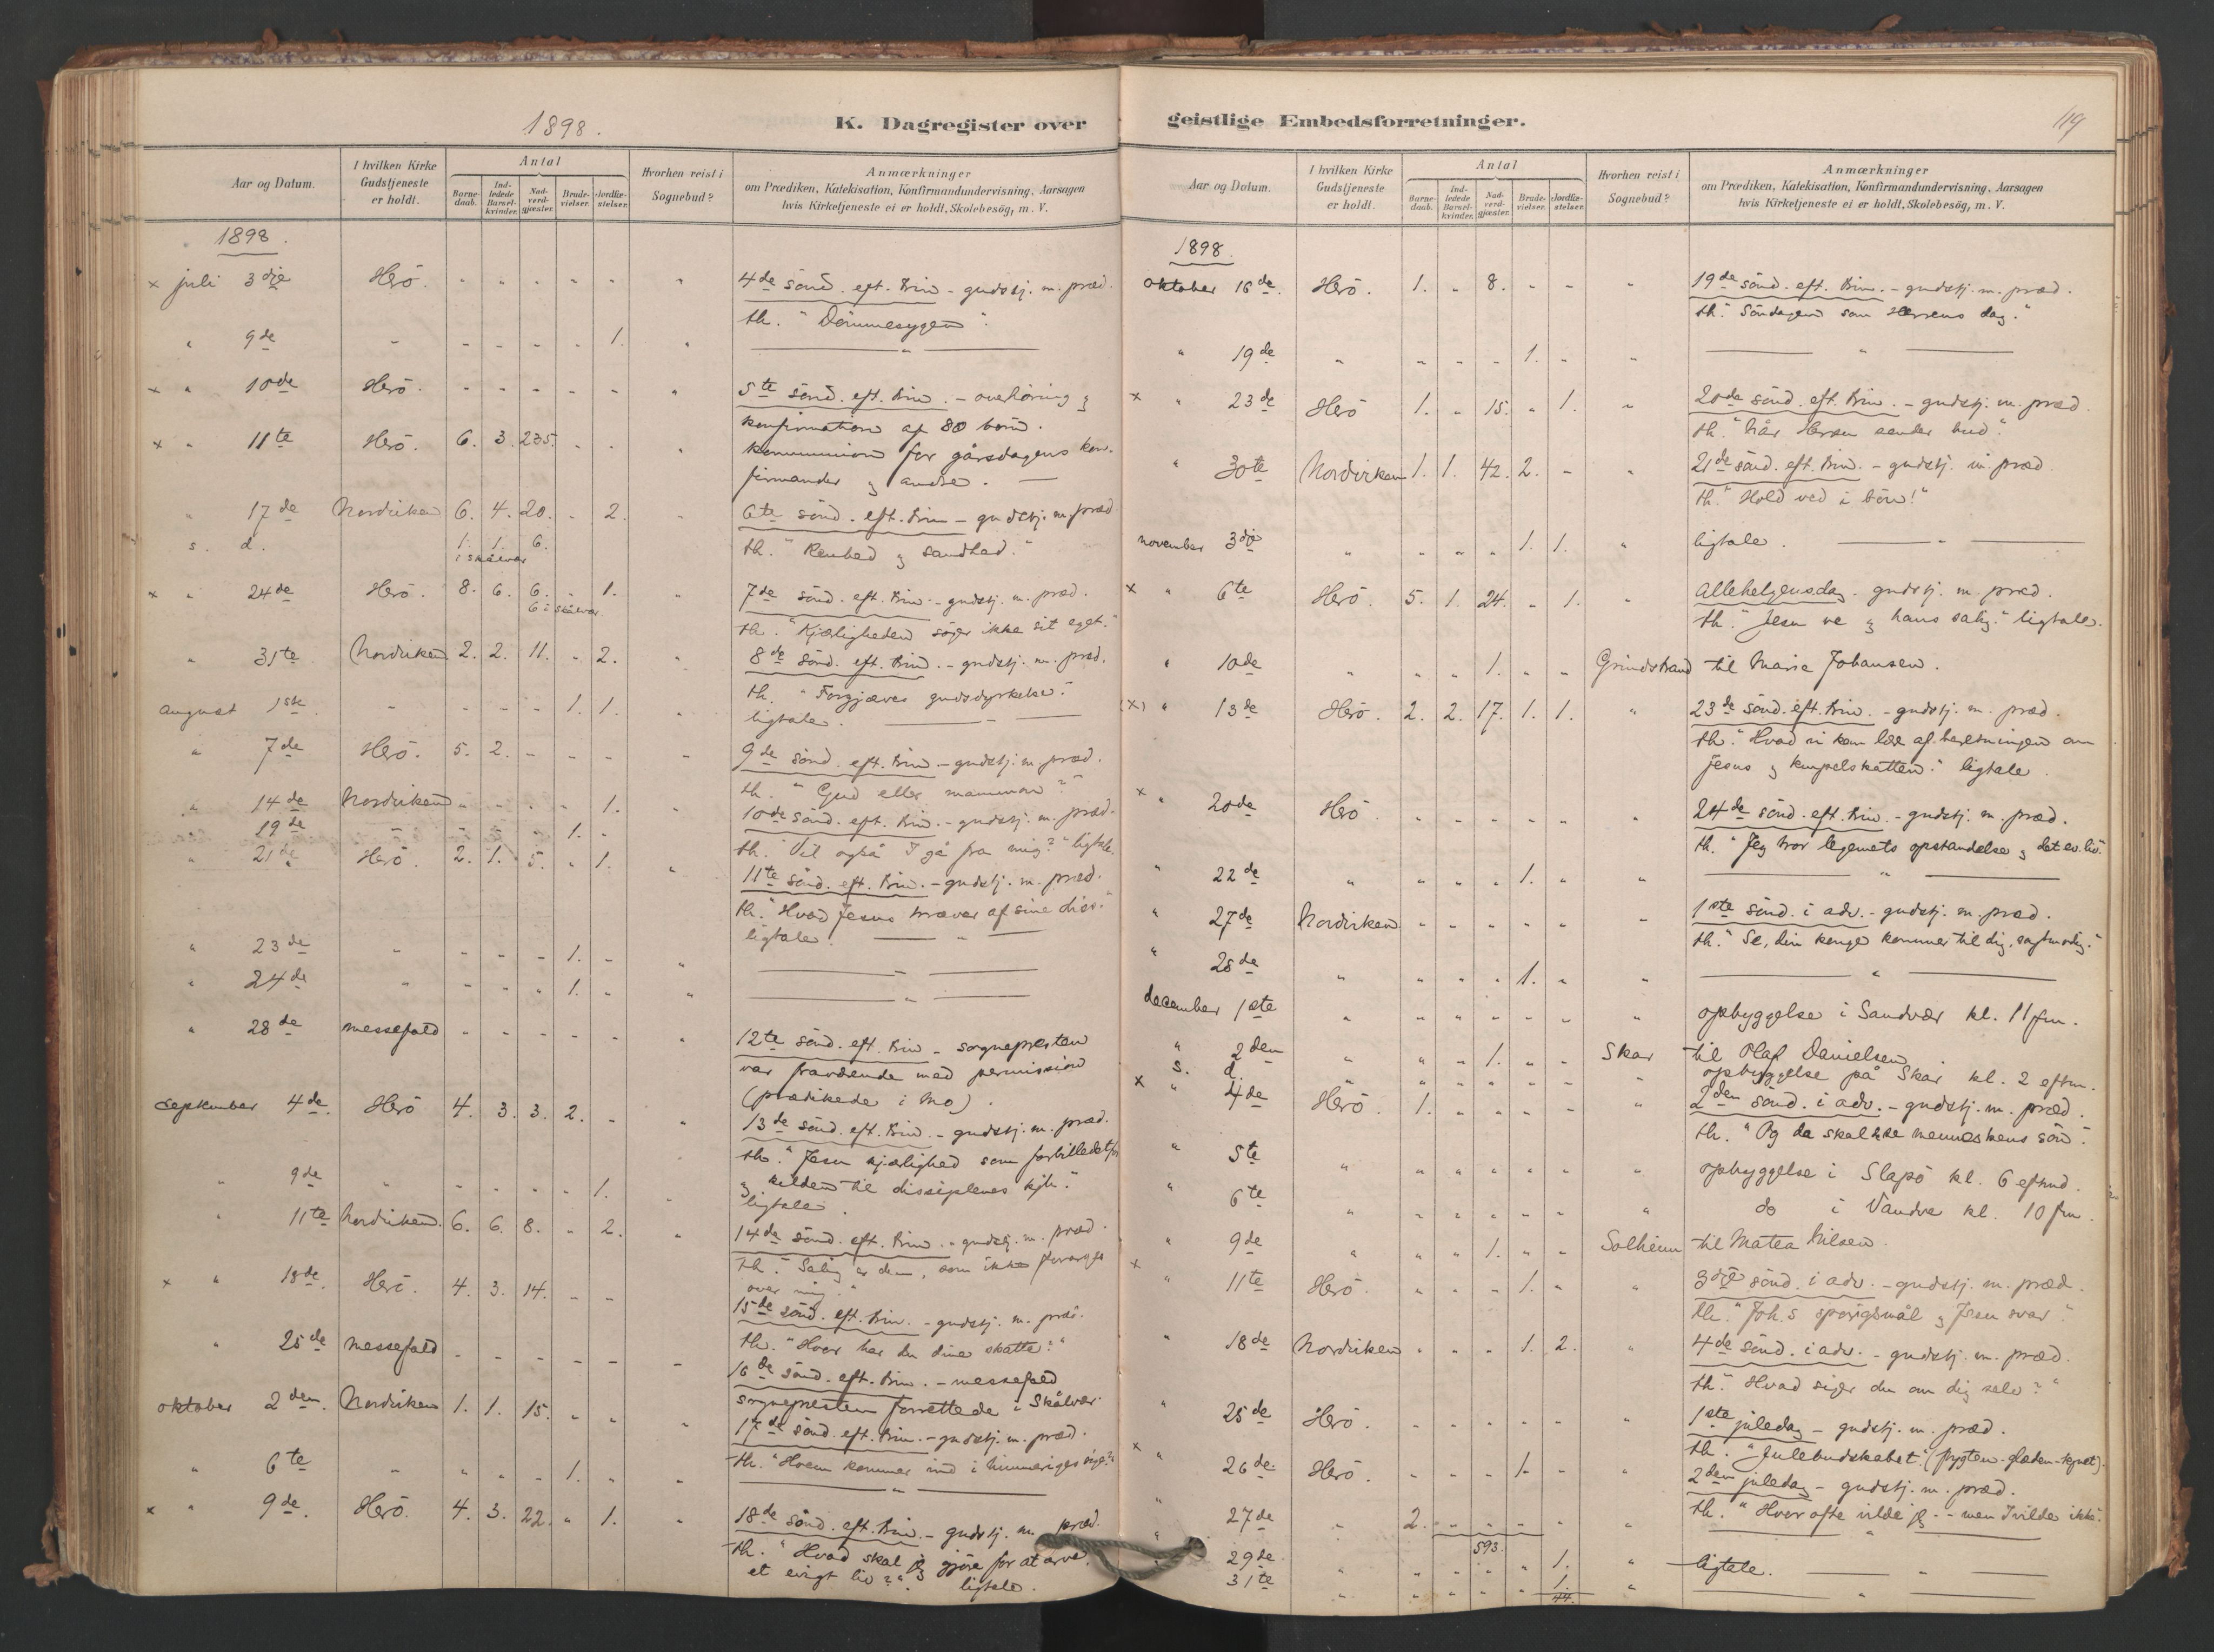 1898.
K. Dagregister over
Aar og Datum.
I hvilken Kirke Gudstjeneste er holdt.
Antal
Barne-daab.
Ind-ledede Barsel-kvinder.
Nad-verd-gjæster.
Brude-vielser.
Jordfæ-stelser.
Hvorhen reist i Sognebud?
Anmærkninger
om Prædiken, Katekisation, Konfirmandundervisning, Aarsagen
hvis Kirketjeneste ei er holdt, Skolebesög, m. V.
1898.
× juli 3dje Herö. - - - - - " 4de sönd. eft. Trin - gudstj. m. præd.
th. "Dömmesygen".
" 9de - - - - - 1. "
× " 10de Herö. - - - - - " 5te sönd. eft. Trin. - overhöring &
konfirmation af 80 börn.
× " 11te Herö. 6. 3. 235. - - " kommunion for gårsdagens kon-
firmander & andre. —
" 17de Nordviken 6. 4. 20. - 2. - 6te sönd. eft. Trin - gudstj. m. præd
s. d. 1. 1. 6. th. "Renhed & sandhed."
i Skålvær
× " 24de Herö. 8. 6. 6. - 1. " 7de sönd. eft. Trin. - gudstj. m. præd.
6 i Skålvær. th. "Kjærligheden söger ikke sit eget."
" 31te Nordviken 2. 2. 11. - 2. " 8de sönd. eft. Trin. - gudstj. m. præd.
th. "Forgjæves gudsdyrkelse."
august 1ste - - - - 1. 1. " ligtale.
" 7de Herö. 5. 2. - - - - 9de sönd. eft. Trin. - gudstj. m. præd.
th. "Gud eller mammon?"
" 14de Nordviken - - - - 1. " 10de sönd. eft. Trin. - gudstj. m. præd.
" 19de - - - - 1. -
th. "Vil også I gå fra mig?" ligtale.
" 21de Herö. 2. 1. 5. - 1. " 11te sönd. eft. Trin. - gudstj. m. præd.
th. "Hvad Jesus kræver af sine disc."
ligtale.
" 23de " - - - 1. - "
" 24de " - - - 1. - "
" 28de messefald - - - - - " 12te sönd. eft. Trin - sognepresten
var fraværende med permission
(prædikede i Mo).
september 4de. Herö 4. 3. 3. 2. - " 13de sönd. eft. Trin. - gudstj. m. præd.
th. "Jesu kjærlighed som forbilledet for
& kilden til disciplenes kjh."
" 9de " - - - - 1. - ligtale.
" 11te Nordviken. 6. 6. 8. - 2. " 14de sönd. eft. Trin. - gudstj. m. præd.
th. "Salig er den, som ikke forarges
over mig."
× " 18de. Herö. 4. 3. 14. - - 15de sönd. eft. Trin. - gudstj. m. præd.
th. "Hvor har du dine skatte?"
" 25de messefald - - - - - - 16de sönd. eft. Trin. - messefald
sognepresten forrettede i Skålvær.
oktober 2den. Nordviken 1. 1. 15. - - " 17de sönd. eft. Trin. - gudstj. m. præd.
th. "Hvem kommer ind i himmeriges rige?"
" 6te " - - - 1. - "
× " 9de. Herö. 4. 3. 22. - 1. " 18de sönd. eft. Trin. - gudstj. m. præd.
th. "Hvad skal jeg gjöre for at arve
et evigt liv?" ligtale.
geistlige Embedsforretninger.
119
Aar og Datum.
I hvilken Kirke Gudstjeneste er holdt.
Antal
Barne-daab.
Ind-ledede Barsel-kvinder.
Nad-verd-gjæster.
Brude-vielser.
Jordfæ-stelser.
Hvorhen reist i Sognebud?
Anmærkninger
om Prædiken, Katekisation, Konfirmandundervisning, Aarsagen
hvis Kirketjeneste ei er holdt, Skolebesög, m. V.
1898.
oktober 16de. Herö. 1. - 8. - - " 19de sönd. eft. Trin. - gudstj. m. præd.
th. "Söndagen som Herrens dag."
" 19de " - - - 1. - "
× " 23de Herö 1. - 15. - 1. " 20de sönd. eft. Trin. - gudstj. m. præd.
th. "Når Herren sender bud".
" 30te Nordviken 1. 1. 42. 2. - " 21de sönd. eft. Trin. - gudstj. m. præd
th. "Hold ved i bön!"
november 3dje " - - - 1. 1. " ligtale.
× " 6te Herö. 5. 1. 24. - 1. " Allehelgensdag - gudstj. m. præd.
th. "Jesu ve & hans salig." ligtale.
" 10de " - - 1. - - Grindstrand til Marie Johansen.
(×) " 13de Herö. 2. 2. 17. 1. 1. " 23de sönd. eft. Trin. - gudstj. m. præd.
th. "Hvad vi kan lære af beretningen om
Jesus & tempelskatten." ligtale.
× " 20de Herö - - - - - " 24de sönd. eft. Trin. - gudstj. m. præd.
th. "Jeg tror legemets opstandelse & det ev. liv."
" 22de " - - - 1. - "
" 27de Nordviken - - - - - " 1ste sönd. i adv. - gudstj. m. præd.
th. "Se, din konge kommer til dig, sagtmodig."
" 28de " - - - 1. - "
december 1ste " - - - - - " opbyggelse i Sandvær kl. 11 fm.
" 2den " - - 1. - - Skar til Olaf Danielsen.
s. d. - - - - - " opbyggelse på Skar kl. 2 eftm.
× " 4de Herö. 1. - - - - " 2den sönd. i adv. - gudstj. m. præd.
th. "Og da skal de se menneskens sön".
" 5te " - - - - - " opbyggelse i Slapö kl. 6 eftmd.
" 6te " - - - - - " do i Vandve kl. 10 fm.
" 9de " - - 1. - - Solheim til Matea Nilsen.
× " 11te Herö. - - - 1. - " 3dje sönd. i adv. - gudstj. m. præd.
th. "Joh.s spörgsmål & Jesu svar".
" 18de Nordviken - - - 1. 2. " 4de sönd. i adv. - gudstj. m. præd.
th. "Hvad siger du om dig selv?"
" 25de Herö. - - - - - " 1ste juledag - gudstj. m. præd.
th. "Julebudskabet." (frygten-glæden-tegnet).
× " 26de. Herö. - - - 1. - " 2den juledag - gudstj. m. præd.
th. "Hvor ofte vilde jeg -- men I vilde ikke."
" 27de " 2. - - - - "
593.
" 29de " - - - - 1. " ligtale.
31te " - - - - 1. "
44.